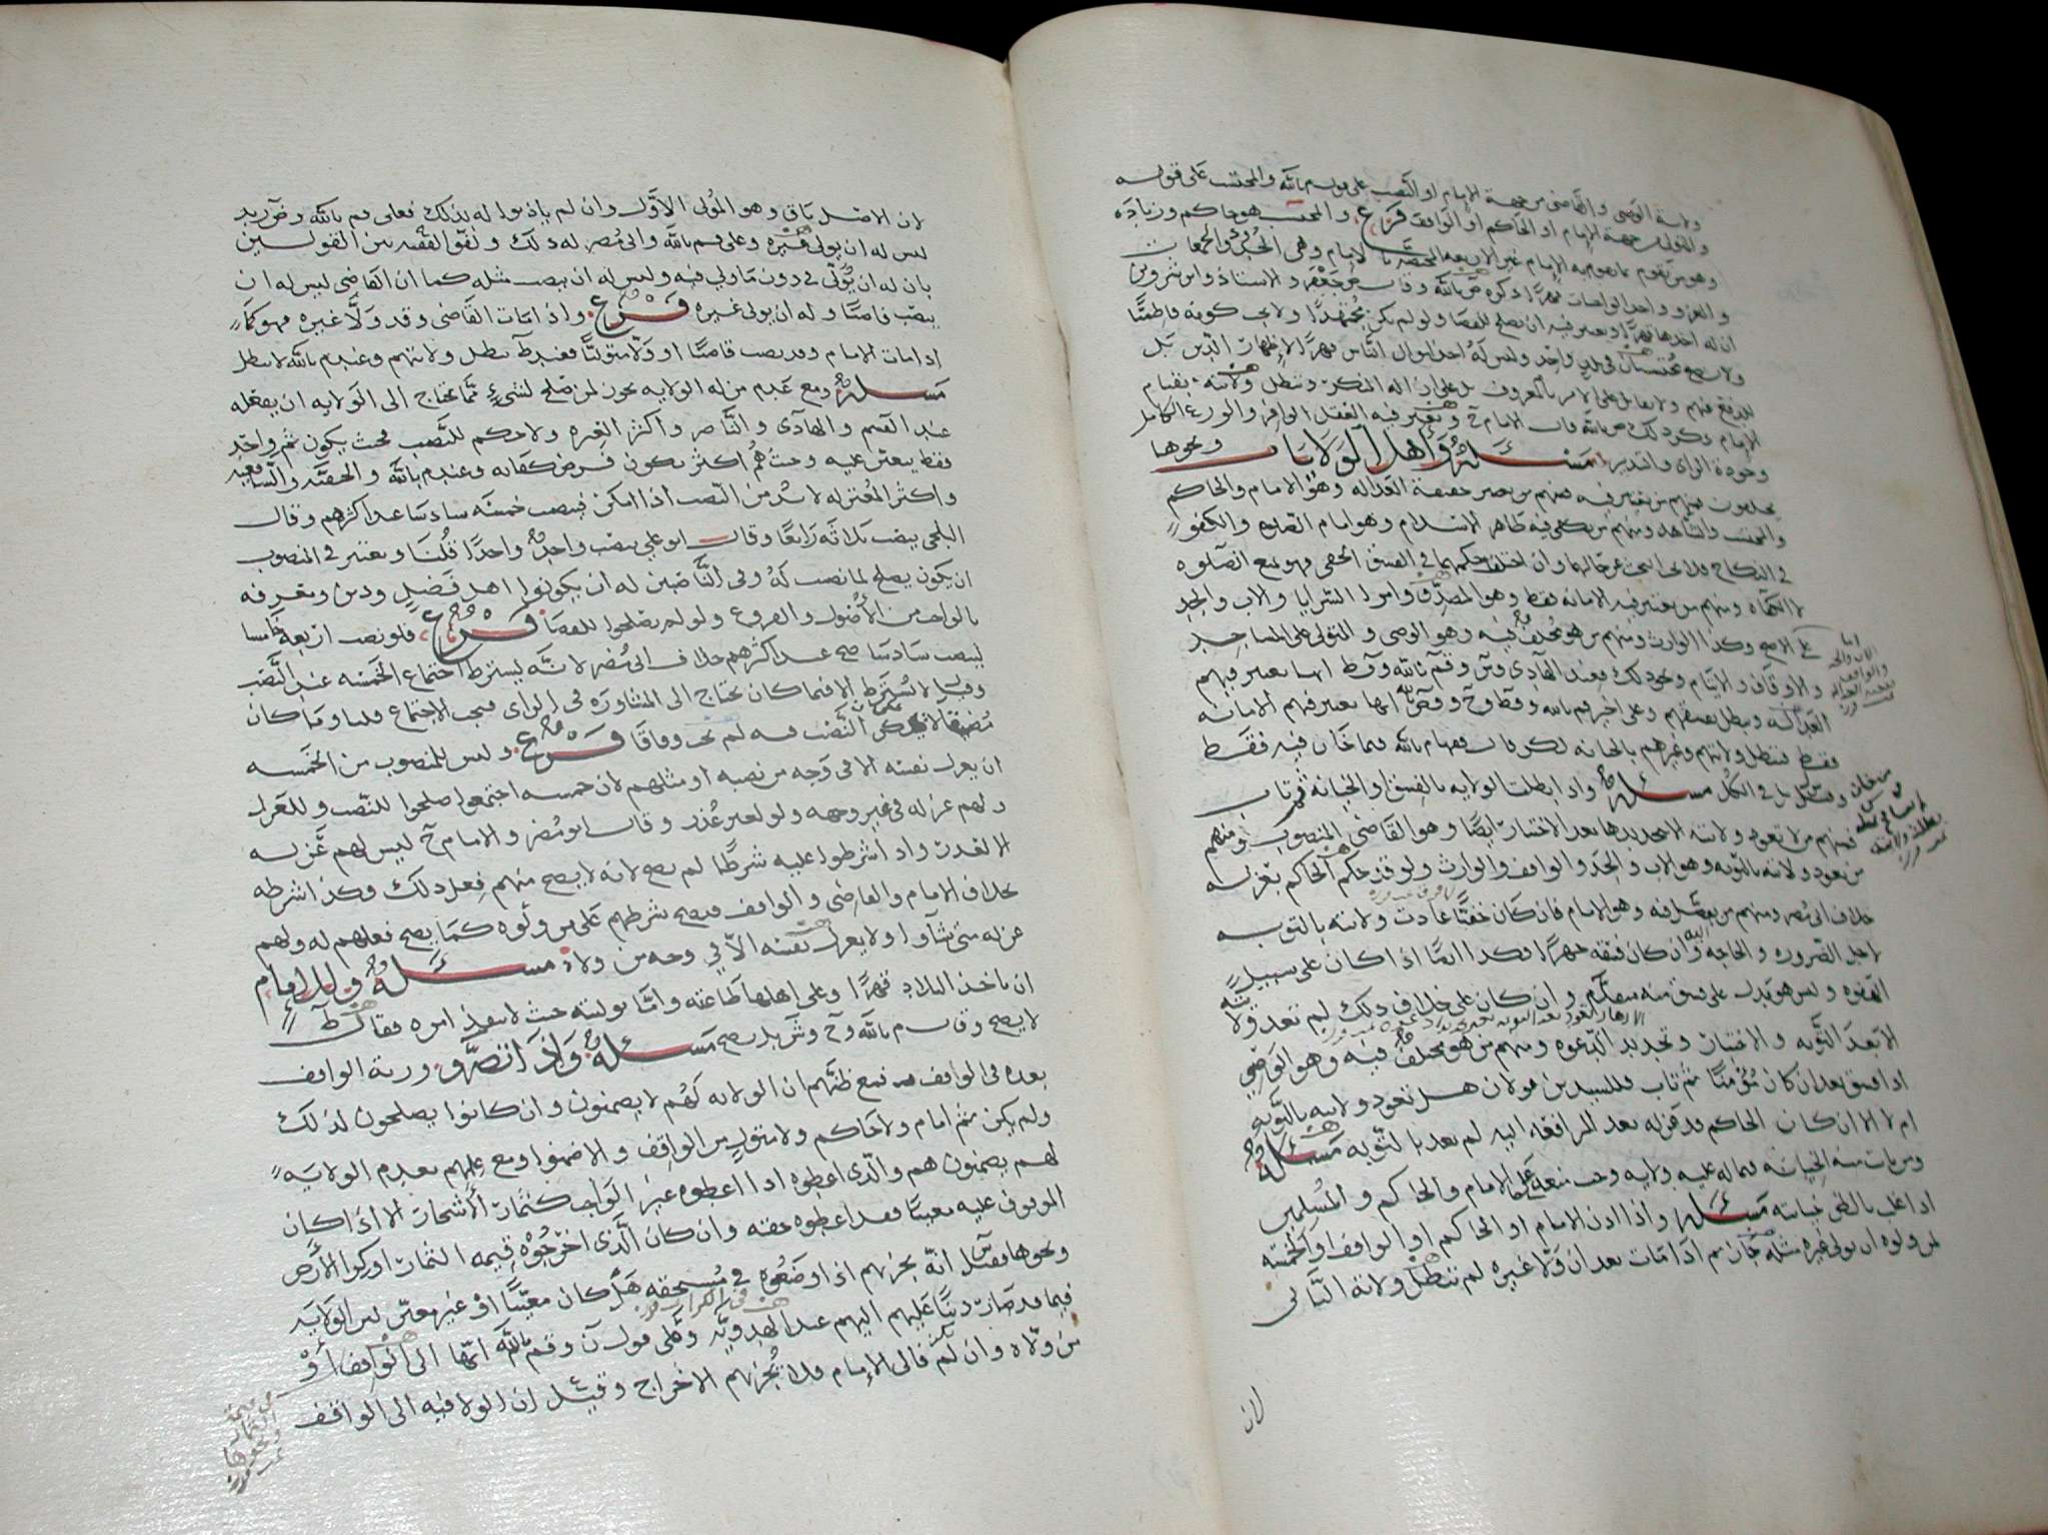 ولاية الوصي والقاضي من جهة الإمام او النصب على قول م بالله والمحتسب على قوله
والمتولي من جهة الإمام او الحاكم او الواقف فرع والمحتسب هو حاكم وزيادة
وهو من يقوم بما يقوم به الإمام غير الاربعة المختصة بالإمام وهي الحدود والجمعات
والغزو واخذ الواجبات قهرا ذكره ض بالله وقال ابو جعفر والاستاذ وابن شروين
ان له اخذها قهرا ويعتبر فيه ان يصلح للقضا ولو لم يكن مجتهدا ولا يجب كونه فاطميا
ولا يصح محتسبان في بلد واحد وليس له اخذ اموال الناس قهرا لإظهار الدين بل
للدفع عنهم ولا يقاتل على الامر بالمعروف بل على ازالة المنكر وتبطل ولايته بقيام
الإمام وكذلك ض بالله قال الإمام ح ويعتبر فيه العقل الوافر والورع الكامل
وجودة الراي والتدبير مسئلة وأهل الولايات ونحوها
يختلفون فمنهم من يعتبر فيه حقيقة العدالة وهو الامام والحاكم
والمحتسب والشاهد ومنهم من يكفي فيه ظاهر الاسلام وهو امام الصلوة والكفو
في النكاح فلا يجب البحث عن حالهما وان اختلف حكمهما في الفسق الخفي فهو يمنع الصلوة
لا النكاح ومنهم من يعتبر فيه الامانة فقط وهو المصدق وامرا السرايا والاب والجد
على الاصح وكذا الوارث ومنهم من هو مختلف فيه وهو الوصي والمتولي على المساجد
والاوقاف والايتام ونحو ذلك فعند الهادي وش وقم بالله وقط انها يعتبر فيهم
العدالة وتبطل بفسقهم وعلى اخير قم بالله وقط وح وقض بالله انها يعتبر فيهم الامانة
فقط فتبطل ولايتهم وغيرهم بالخيانة لكن قال فيما خان فيه فقط
وقيل بل في الكل مسئلة واذا بطلت الولاية بالفسق او الخيانة ثم تاب
فمنهم من لا تعود ولايته الا بتجديدها بعد الاختبار ايضا وهو القاضي المنصوب ومنهم
من تعود ولايته بالتوبة وهو الاب والجد والواقف والوارث ولو قد حكم الحاكم بعزله
خلاف ابي مضر ومنهم من يفصل فيه وهو الامام فان كان خفيا عادت ولايته بالتوبه
لاجل الضروره والحاجه اليه وان كان فسقه جهرا فكذا ايضا اذا كان على سبيل
الهفوه وليس هو يدل على فسق منه متقدم وان كان على خلاف ذلك لم تعد ولايته
الا بعد التوبه والاختبار وتجديد الدعوه ومنهم من هو مختلف فيه وهو الوصي
اذا فسق بعد ان كان مؤمنا ثم تاب فللسيدين قولان هل تعود ولايته بالتوبة
ام لا الا ان كان الحاكم قد عزله بعد المرافعة اليه لم تعد بالتوبه مسئلة
ومن بانت منه الخيانة فيما له عليه ولاية وجب منعه على الامام والحاكم والمسلمين
اذا غلب بالظن خيانته مسئلة واذا اذن الامام او الحاكم او الواقف او الخمسه
لمن ولوه ان يولي غيره مثله جاز ثم اذا مات بعد ان ولا غيره لم تبطل ولاية الثاني
لان
لان الاصل باق وهو المولي الاول وان لم ياذنوا له بذلك فعلى قم بالله وض زيد
ليس له ان يولي غيره وعلى قم بالله وابي مضر له ذلك ولفق الفقيه بين القولين
بان له ان يولي في دون ما ولي فيه وليس له ان ينصب مثله كما ان القاضي ليس له ان
ينصب قاضيا وله ان يولي غيره فرع واذا مات القاضي وقد ولا غيره فهو كما
اذا مات الامام وقد نصب قاضيا او ولا متوليا فعند ط تبطل ولايتهم وعند م بالله لا تبطل
مسئلة ومع عدم من له الولاية يجوز لمن صلح لشيء مما يحتاج الى الولايه ان يفعله
عند القسم والهادي والناصر واكثر العترة ولا حكم للنصب فحيث يكون ثم واحد
فقط يتعين عليه وحيث هم اكثر يكون فرض كفاية وعند م بالله والحنفية والشافعيه
واكثر المعتزله لا بد من النصب اذا امكن فينصب خمسه سادسا عند اكثرهم وقال
البلخي ينصب ثلاثة رابعا وقال ابو علي ينصب واحد واحدا قلنا ويعتبر في المنصوب
ان يكون يصلح لما نصب له وفي الناصبين له ان يكونوا اهل فضل ودين ومعرفه
بالواجب من الأصول والفروع ولو لم يصلحوا للقضا فرع فلو نصب اربعة خامسا
لينصب سادسا صح عند اكثرهم خلاف ابي مضر لانه يشترط اجتماع الخمسه عند النصب
وقيل لا يشترط الا فيما كان يحتاج الى المشاورة في الراي فيجب الاجتماع فلما وما كان
النصب فيه لم يجب وفاقا فرع وليس للمنصوب من الخمسه
ان يعزل نفسه الا في وجه من نصبه او مثلهم لان خمسه اجتمعوا صلحوا للنصب وللعزل
ولهم عزله في غير وجهه ولو لغير عذر وقال ابو مضر والامام ح ليس لهم عزله
الا لعذر واذا شرطوا عليه شرطا لم يصح لانه لا يصح منهم فعل ذلك وكذا شرطه
بخلاف الامام والقاضي والواقف فيصح شرطهم على من ولوه كما يصح فعلهم له ولهم
عزله متى شاوا ولا يعزل نفسه الا في وجه من ولاه مسئلة وللامام
ان ياخذ البلاد قهرا وعلى اهلها طاعته واما توليته حيث لا ينفذ امره فقال ط
لا يصح وقال م بالله وح وش بل يصح مسئلة واذا تصرف ورثة الواقف
بعده في الوقف مع ظنهم ان الولاية لهم لا يضمنون وان كانوا يصلحون لذلك
ولم يكن ثم امام ولا حاكم ولا متول من الواقف والا ضمنوا ومع علمهم بعدم الولاية
لهم يضمنون هم والذي اعطوه اذا اعطوه غير الواجب كثمار الأشجار الا اذا كان
الموقوف عليه معينا فقد اعطوه حقه وان كان الذي اخرجوه قيمة الثمار او كرا الأرض
ونحوها فقيل انه يجزيهم اذا وضعوه في مستحقه هل كان معينا او غير معين ليس الولاية
فيما قد صار دينا عليهم اليهم عند الهدويه وعلى قول ن وقم بالله انها الى الواقف أو
من ولاه وان لم فالى الإمام فلا يجزيهم الاخراج وقيل ان الولا فيه الى الواقف